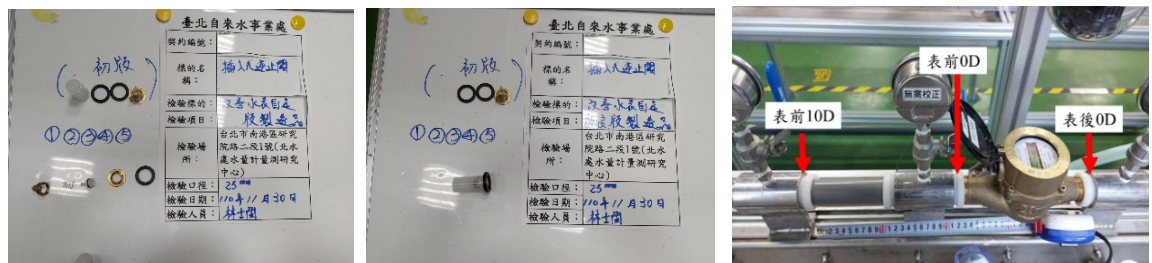 臺北自來水事業處
契約編號：
標的名稱：
插入式逆止閥
檢驗標的：
改善水表自走
檢驗項目：
檢驗場所：
台北市南港區研究院路二段1號(北水處水量計量測研究中心)
檢驗口徑：
25mm
檢驗日期：
110年11月30日
檢驗人員：
(初版)
①②③④⑤
臺北自來水事業處
契約編號：
標的名稱：
插入式逆止閥
檢驗標的：
改善水表自走
檢驗項目：
檢驗場所：
台北市南港區研究院路二段1號(北水處水量計量測研究中心)
檢驗口徑：
25mm
檢驗日期：
110年11月30日
檢驗人員：
(初版)
①②③④⑤
表前10D
無需校正
表前0D
表後0D